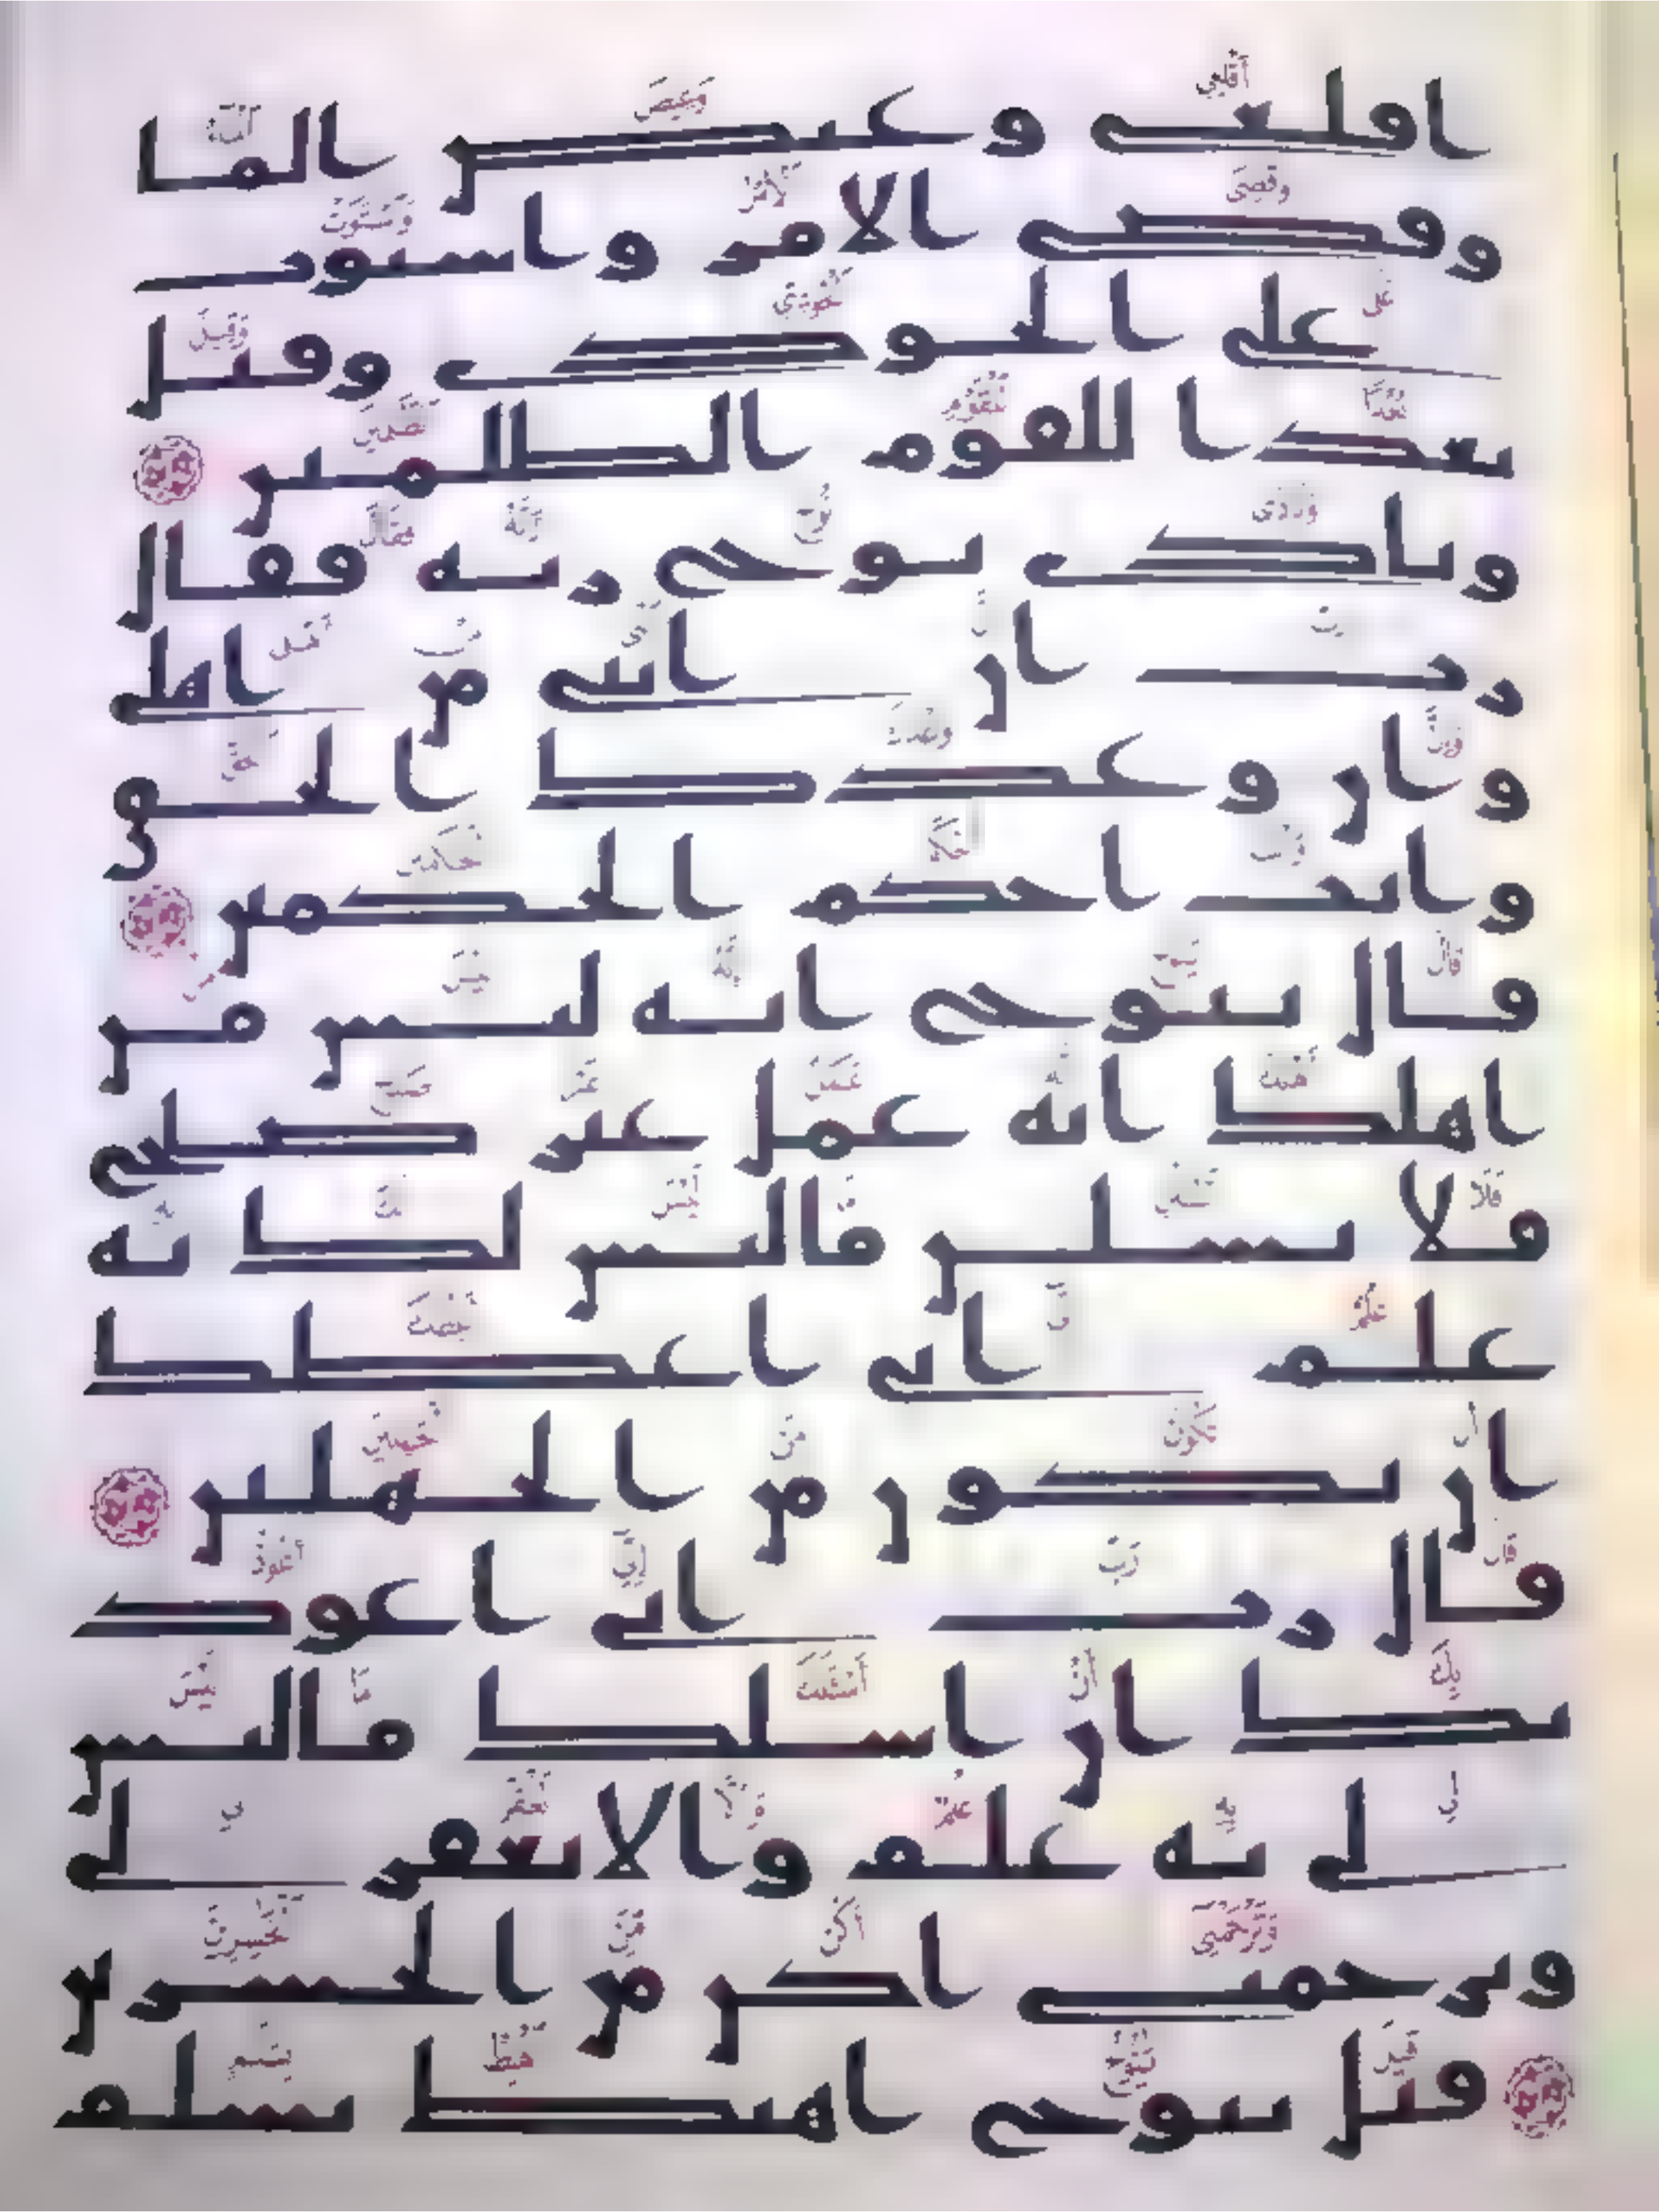 اقلعى وغيض الما
وقضى الامر واستوت
على الجودى وقيل
بعدا للقوم الظلمين
ونادى نوح ربه فقال
رب ان ابنى من اهلى
وان وعدك الحق
وانت احكم الحكمين
قال ينوح انه ليس من
اهلك انه عمل غير صلح
فلا تسلن ما ليس لك به
علم انى اعظك
ان تكون من الجهلين
قال رب انى اعوذ
بك ان اسلك ما ليس
لى به علم والا تغفر لى
وترحمنى اكن من الخسرين
قيل ينوح اهبط بسلم